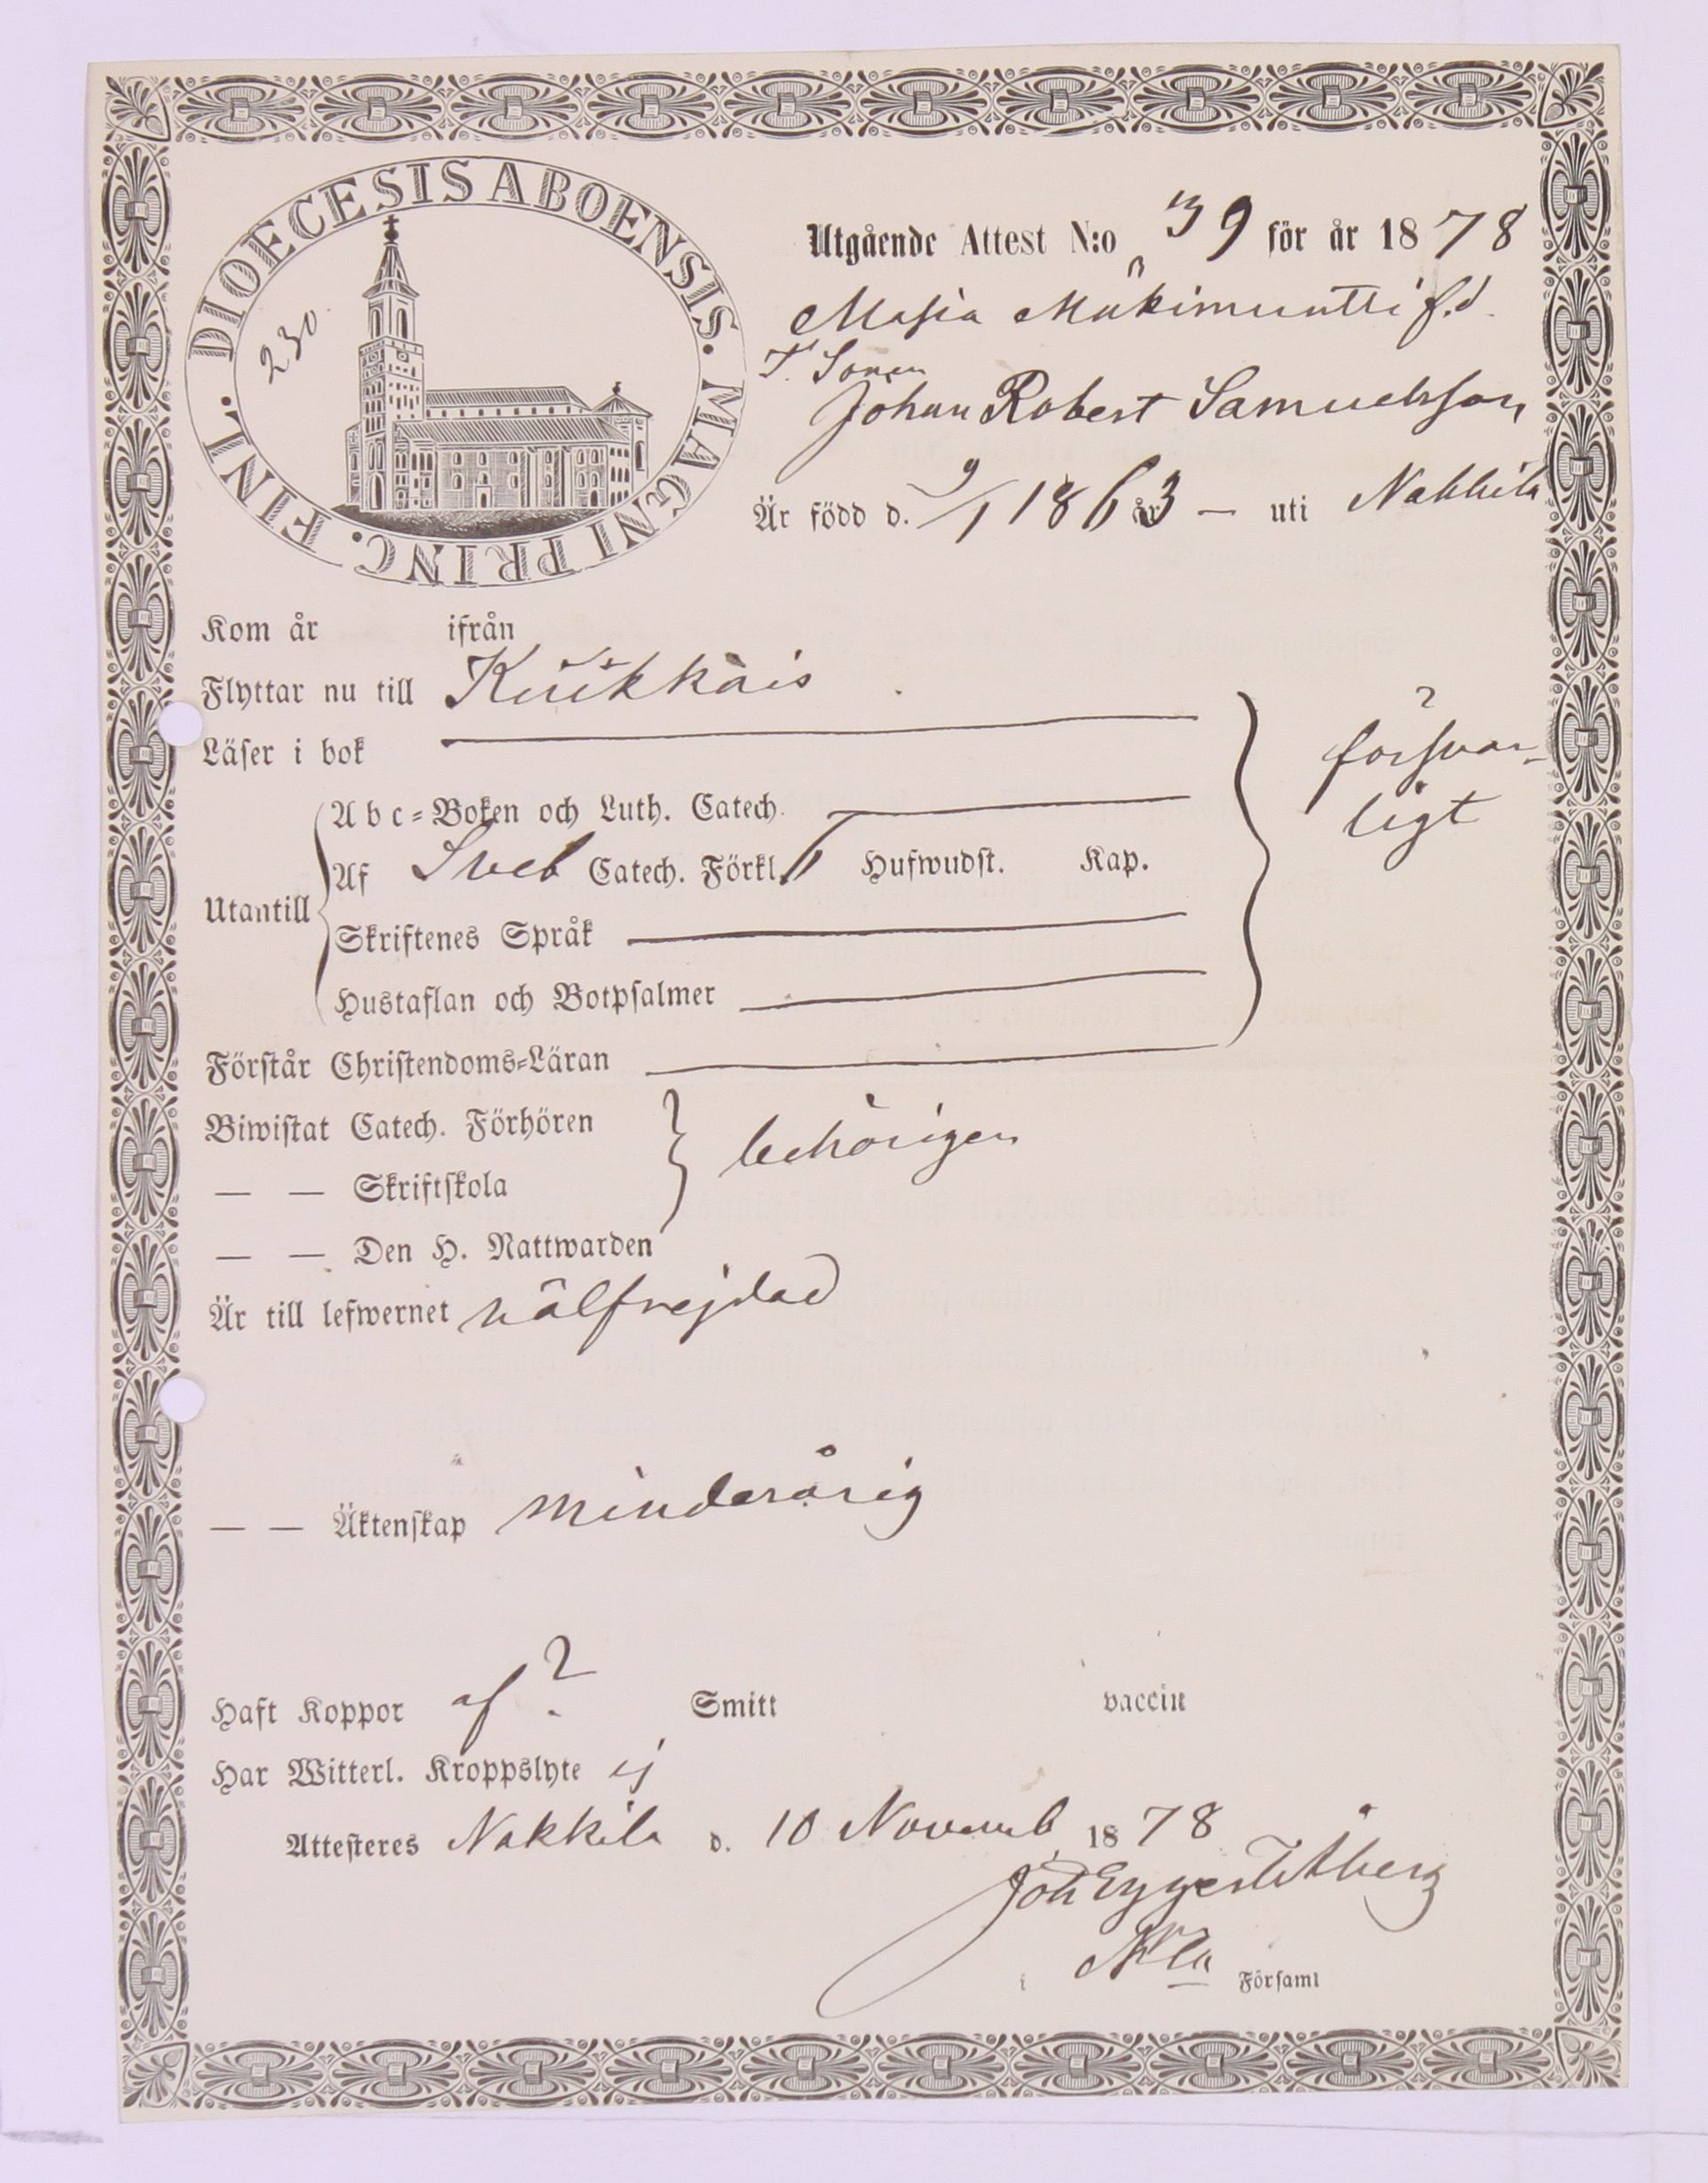 DIOECESIS ABOENSIS. MAGNI PRINC. FINL.
230.
Utgående Attest N:o 39 för år 1878
Masia Mäkimuntti f.d.
T. Sonen
Johan Robert Samuelsson,
Är född d. 9/1 1863 — uti Nakkila
Kom år ifrån
Flyttar nu till
Läser i bok
försvar-
ligt
Abc=Boken och Luth. Catech.
Utantill
Af Sveb Catech. Förkl. Hufwudst. Kap.
Skriftenes Språk
Hustaflan och Botpsalmer
Förstår Christendoms=Läran
Biwistat Catech. Förhören
behörigen
— — Skriftskola
— — Den H. Nattwarden
Är till lefwernet välfrejdad
— — Äktenskap minderårig
Haft Koppor af? Smitt vaccin
Har Witterl. Kroppslyte ej
Attesteres Nakkila d. 10 Novemb 1878
Joh Eggert Åberg
i Nla Församl